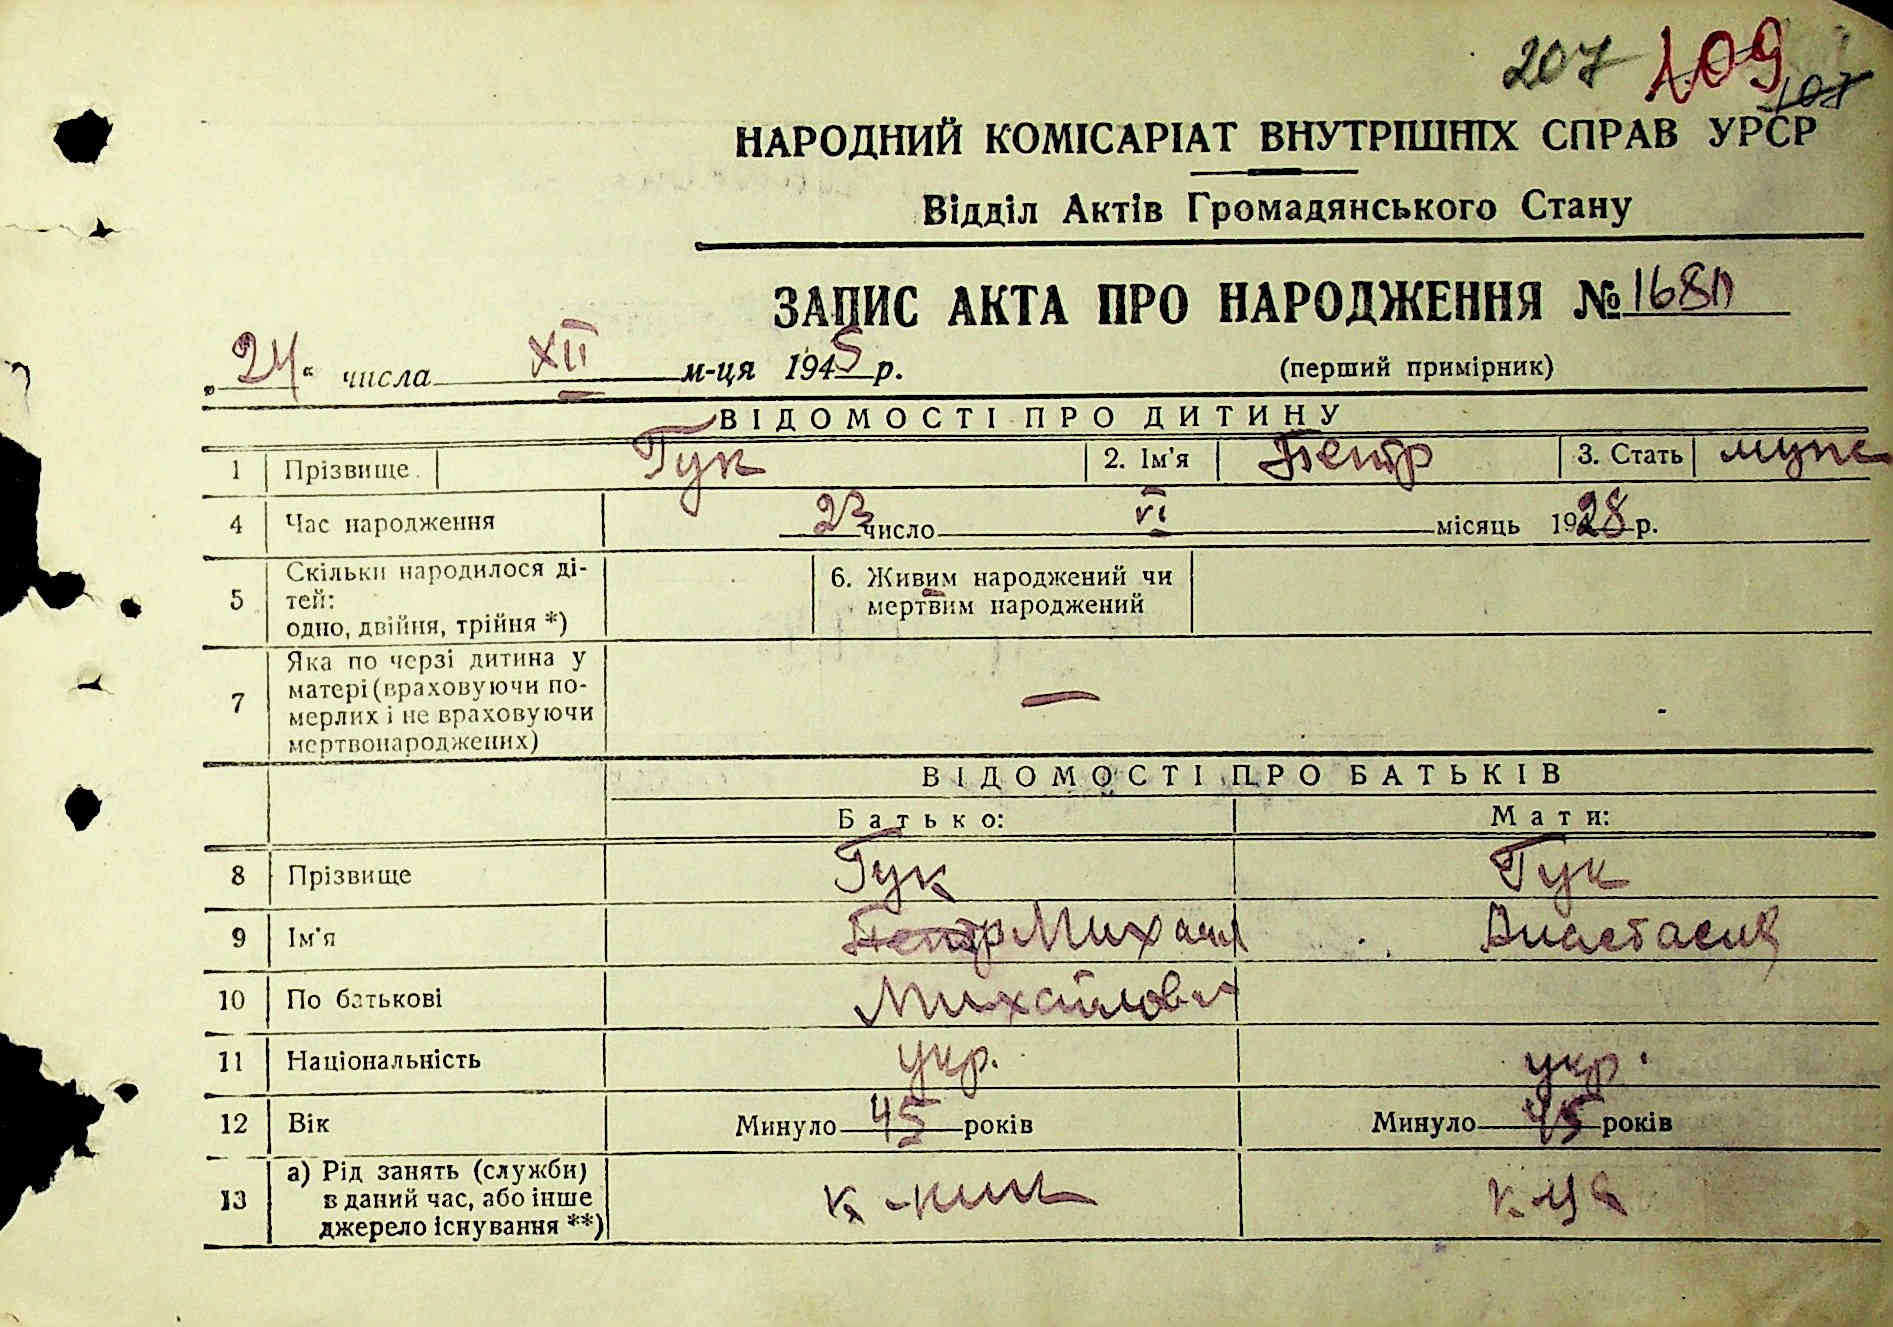 207 109 107
НАРОДНИЙ КОМІСАРІАТ ВНУТРІШНІХ СПРАВ УРСР
Відділ Актів Громадянського Стану
ЗАПИС АКТА ПРО НАРОДЖЕННЯ № 1680
„24“ числа XII м-ця 1945 р. (перший примірник)
ВІДОМОСТІ ПРО ДИТИНУ
1 Прізвище Гук 2. Ім'я Петр 3. Стать муж
4 Час народження 23 число VI місяць 1928 р.
5 Скільки народилося ді-
тей:
одно, двійня, трійня *)
6. Живим народжений чи
мертвим народжений
7 Яка по черзі дитина у
матері (враховуючи по-
мерлих і не враховуючи
мертвонароджених)
—
ВІДОМОСТІ ПРО БАТЬКІВ
Батько: Мати:
8 Прізвище Гук Гук
9 Ім'я Петр Михаил Анастасия
10 По батькові
11 Національність укр. укр.
12 Вік Минуло 45 років Минуло 45 років
13 а) Рід занять (служби)
в даний час, або інше
джерело існування **)
к-ник к-ца